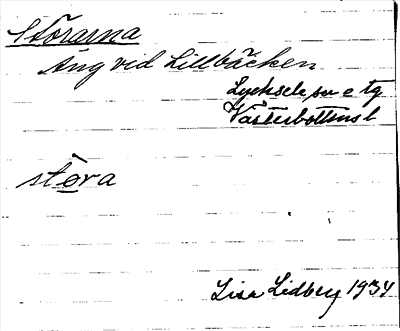 Störarna
Äng vid Lillbäcken
Lycksele sn o tg
Västerbottens l
störa
Lisa Lidberg 1934